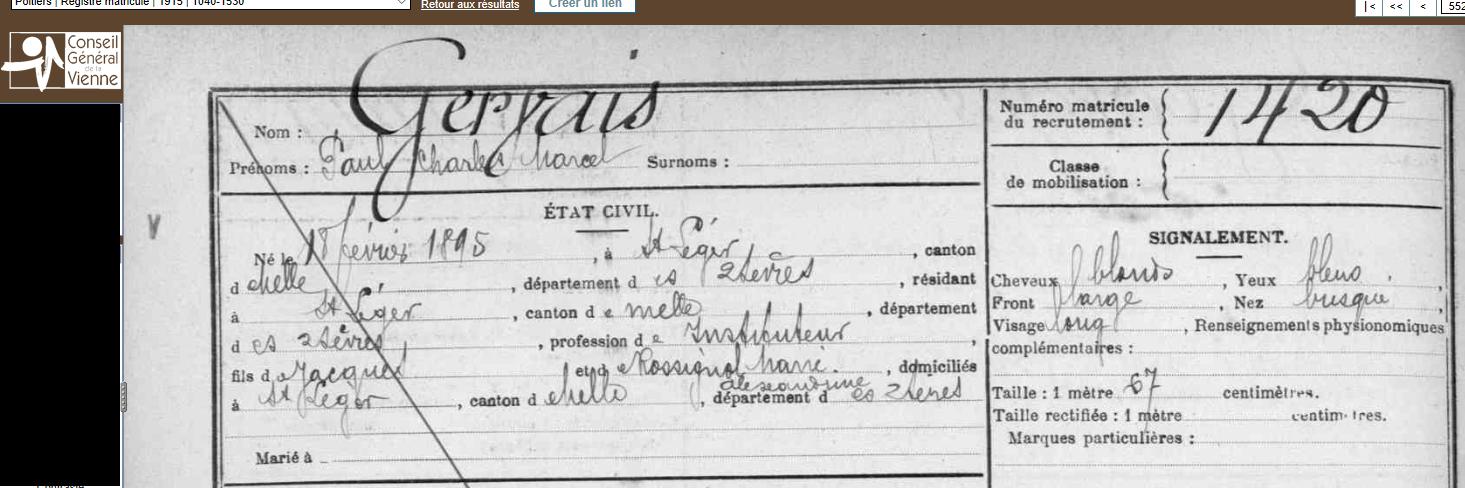 Poitiers | Registre matricule | 1915 | 1040-1530
Retour aux résultats
Créer un lien
|< << < 552
Conseil
Général
de la
Vienne
Nom : Gervais
Prénoms : Paul Charles Marcel Surnoms :
Numéro matricule
du recrutement : 1420
Classe
de mobilisation :
ÉTAT CIVIL.
Né le 18 février 1895, à St Léger, canton
d Melle, département d es 2 Sèvres, résidant
à St Léger, canton d e Melle, département
d es 2 Sèvres, profession d e Instituteur,
fils d e Jacques et d e Rossignol Marie, domiciliés
Alexandrine
à St Léger, canton d e Melle, département d es 2 Sèvres
Marié à
SIGNALEMENT.
Cheveux blonds, Yeux bleus,
Front large, Nez busqué,
Visage long, Renseignements physionomiques
complémentaires :
Taille : 1 mètre 67 centimètres.
Taille rectifiée : 1 mètre centimètres.
Marques particulières :